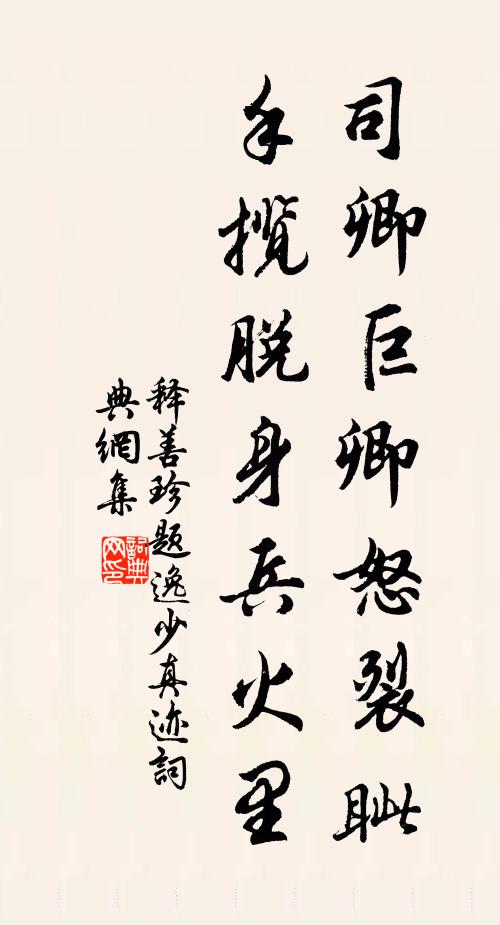 司卿巨卿怒裂眦
手揽脱身兵火里
释善珍题逸少真迹詞
典網集
詞典
网印